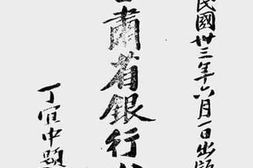 民國卅三年六月一日出版
甘肅省銀行
丁宜中題